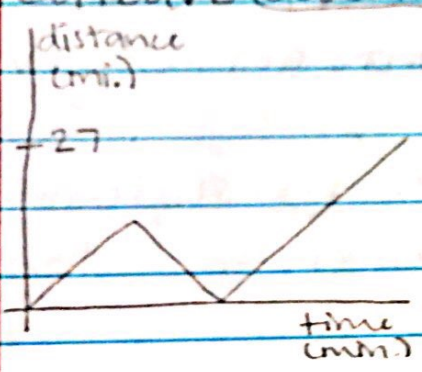 distance
(mi.)
27
time
(min.)